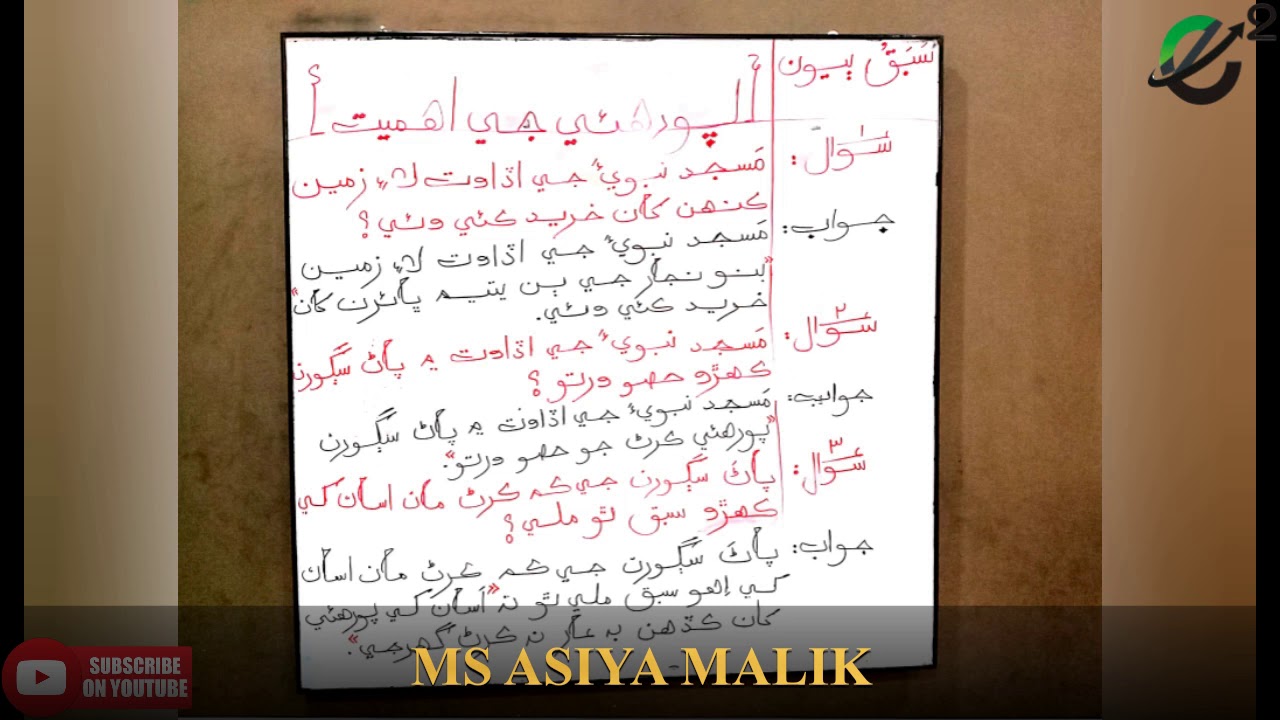 سَبَقُ ٻيون
"پورهئي جي اهميت"
سَوَالَ ١:
مَسجد نبويؐ جي اڏاوت لاءِ زمين
ڪنهن کان خريد ڪئي وئي؟
جواب:
مَسجد نبويؐ جي اڏاوت لاءِ زمين
"بنو نجار جي ٻن يتيم ڀائرن کان"
خريد ڪئي وئي.
سَوَال ٢:
مَسجد نبويؐ جي اڏاوت ۾ پاڻ سڳورن
ڪهڙو حصو ورتو؟
جواب:
مَسجد نبويؐ جي اڏاوت ۾ پاڻ سڳورن
"پورهئي ڪرڻ جو حصو ورتو".
سَوَال ٣:
پاڻَ سڳورن جي ڪم ڪرڻ مان اسان کي
ڪهڙو سبق ٿو ملي؟
جواب:
پاڻَ سَڳورن جي ڪم ڪرڻ مان اسان
کي اِهو سبق ملي ٿو ته "اَسان کي پورهئي
کان ڪڏهن به عار نه ڪرڻ گهرجي".
SUBSCRIBE
ON YOUTUBE
MS ASIYA MALIK
2